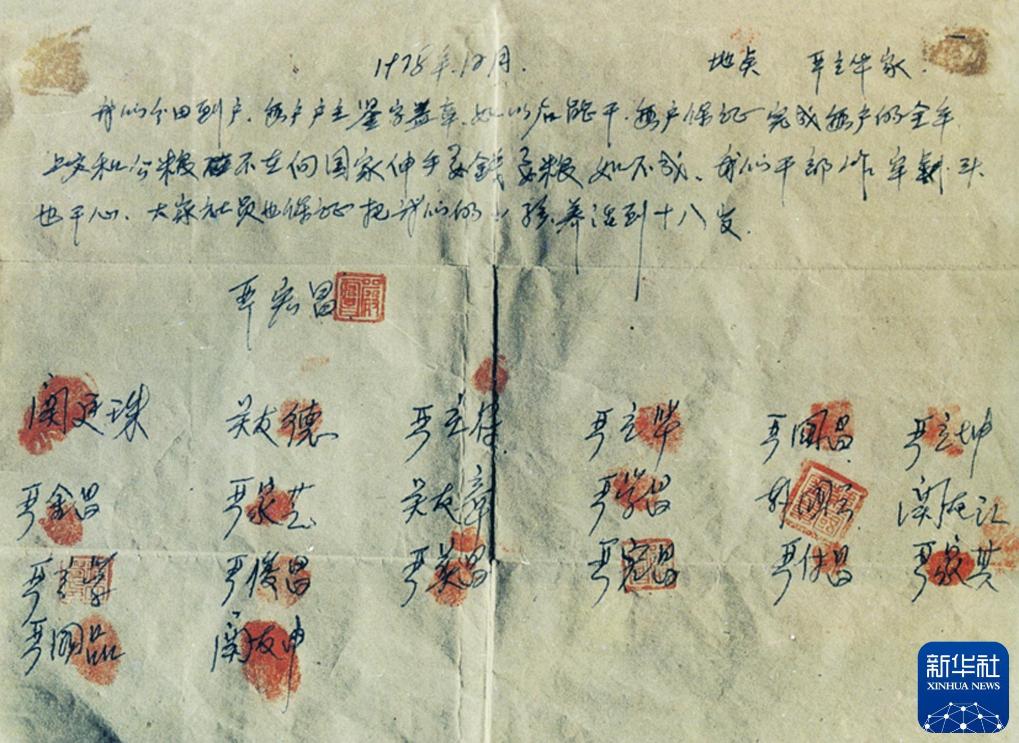 1978年.12月. 地点 严立华家.
我们分田到户.每户户主签字盖章.如以后能干.每户保证完成每户的全年
上交和公粮 不在向国家伸手要錢要粮 如不成.我们干部作牢刹头
也干心.大家社员也保证把我们的小孩.养活到十八岁.
严宏昌
関廷珠 关友德 严立符 严立华 严国昌 严立坤
严金昌 严家芝 关友章 严学昌 韩国云 関友江
严立学 严俊昌 严美昌 严宏昌 严付昌 严家其
严国品 関友申
新华社
XINHUA NEWS